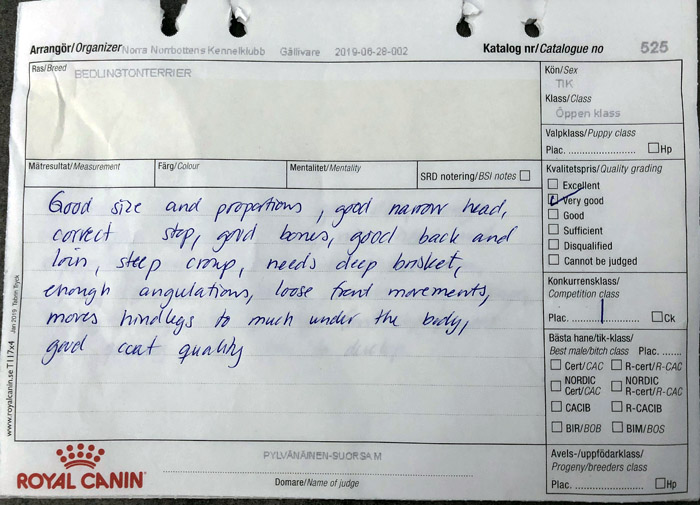 Arrangör/Organizer Norra Norrbottens Kennelklubb Gällivare 2019-06-28-002 Katalog nr/Catalogue no 525
Ras/Breed BEDLINGTONTERRIER
Kön/Sex
TIK
Klass/Class
Öppen klass
Valpklass/Puppy class
Plac. .............. Hp
Mätresultat/Measurement Färg/Colour Mentalitet/Mentality SRD notering/BSI notes
Kvalitetspris/Quality grading
Excellent
Very good
Good
Sufficient
Disqualified
Cannot be judged
Good size and proportions, good narrow head,
correct stop, good bones, good back and
loin, steep croup, needs deep brisket,
enough angulations, loose front movements,
moves hindlegs to much under the body,
good coat quality
Konkurrensklass/
Competition class
Plac. .............. Ck
Bästa hane/tik-klass/
Best male/bitch class Plac. ......
Cert/CAC R-cert/R-CAC
NORDIC Cert/CAC NORDIC R-cert/R-CAC
CACIB R-CACIB
BIR/BOB BIM/BOS
Avels-/uppfödarklass/
Progeny/breeders class
Plac. .............. Hp
www.royalcanin.se T117x4 Jan 2019
ROYAL CANIN
PYLVÄNÄINEN-SUORSA M
Domare/Name of judge